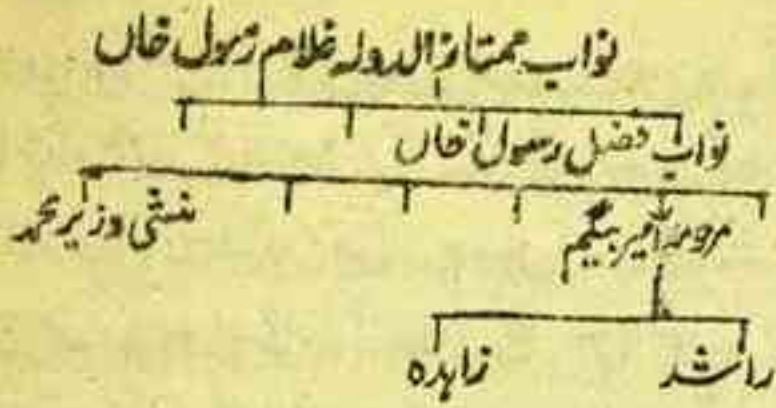 نواب ممتاز الدولہ غلام رسول خاں
نواب فضل رسول خاں
امیر بیگم منشی وزیر محمد
راشد زاہدہ